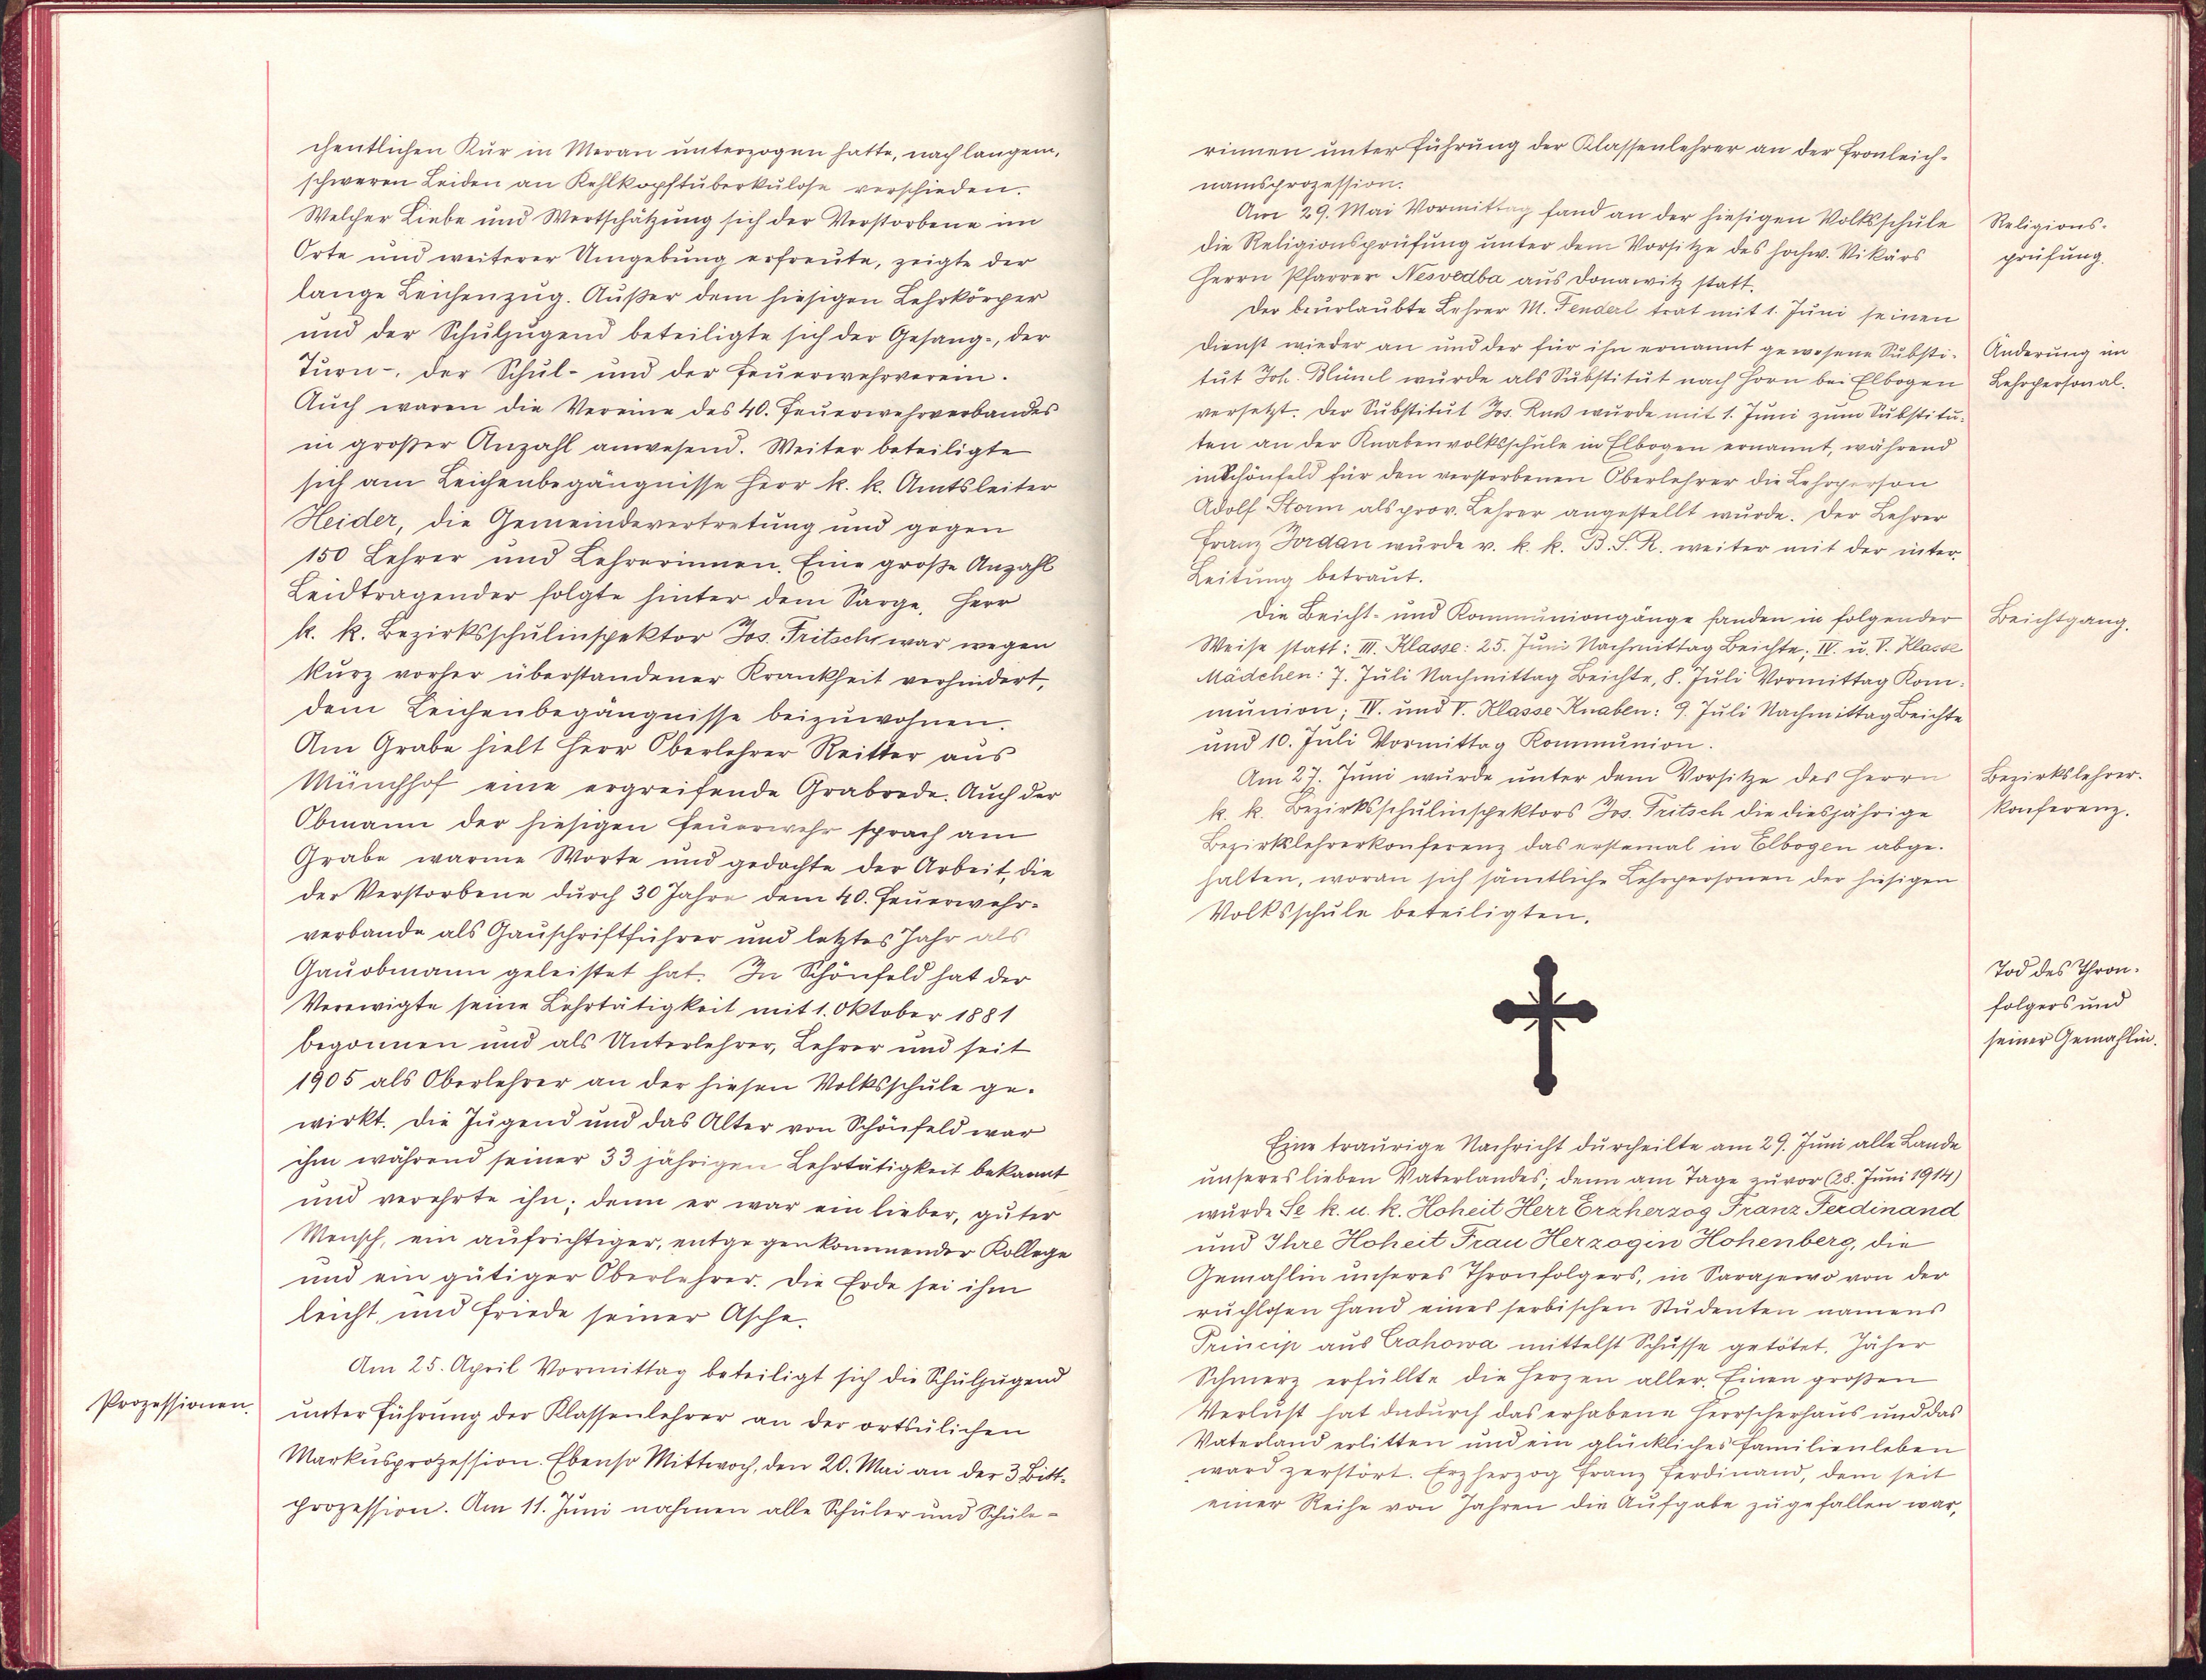 chentlichen Kur in Meran unterzogen hatte, nach langem,
schweren Leiden an Kehlkopftuberkulose verschieden.
Welcher Liebe und Wertschätzung sich der Verstorbene im
Orte und weiterer Umgebung erfreute, zeigte der
lange Leichenzug. Außer dem hiesigen Lehrkörper
und der Schuljugend beteiligte sich der Gesang-, der
Turn-, der Schul- und der Feuerwehrverein.
Auch waren die Vereine des 40. Feuerwehrverbandes
in großer Anzahl anwesend. Weiter beteiligte
sich am Leichenbegängnisse Herr k. k. Amtsleiter
Heider, die Gemeindevertretung und gegen
150 Lehrer und Lehrerinnen. Eine große Anzahl
Leidtragender folgte hinter dem Sarge. Herr
k. k. Bezirksschulinspektor Jos. Fritsch war wegen
kurz vorher überstandener Krankheit verhindert,
dem Leichenbegängnisse beizuwohnen.
Am Grabe hielt Herr Oberlehrer Reitter aus
Münchhof eine ergreifende Grabrede. Auch der
Obmann der hiesigen Feuerwehr sprach am
Grabe warme Worte und gedachte der Arbeit, die
der Verstorbene durch 30 Jahre dem 40. Feuerwehr-
verbande als Gauschriftführer und letztes Jahr als
Gauobmann geleistet hat. In Schönfeld hat der
Verewigte seine Lehrtätigkeit mit 1. Oktober 1881
begonnen und als Unterlehrer, Lehrer und seit
1905 als Oberlehrer an der hiesen Volksschule ge-
wirkt. Die Jugend und das Alter von Schönfeld war
ihm während seiner 33 jährigen Lehrtätigkeit bekannt
und verehrte ihn; denn er war ein lieber, guter
Mensch, ein aufrichtiger, entgegenkommender Kollege
und ein gütiger Oberlehrer. Die Erde sei ihm
leicht, und Friede seiner Asche.
Am 25. April Vormittag beteiligt sich die Schuljugend
Prozessionen.
unter Führung der Klassenlehrer an der ortsülichen
Markusprozession. Ebenso Mittwoch, den 20. Mai an der 3 Bitt-
prozession. Am 11. Juni nahmen alle Schüler und Schüle-
rinnen unter Führung der Klassenlehrer an der Fronleich-
namsprozession.
Am 29. Mai Vormittag fand an der hiesigen Volksschule
Religions-
die Religionsprüfung unter dem Vorsitze des hochw. Vikärs
prüfung.
Herrn Pfarrer Nesvedba aus Donawitz statt.
Der beurlaubte Lehrer M. Fenderl trat mit 1. Juni seinen
Dienst wieder an und der für ihn ernannt gewesene Substi-
Änderung im
tut Joh. Blüml wurde als Substitut nach Horn bei Elbogen
Lehrpersonal.
versetzt. Der Substitut Jos. wurde mit 1. Juni zum Substitu-
ten an der Knabenvolksschule in Elbogen ernannt, während
in Schönfeld für den verstorbenen Oberlehrer die Lehrperson
Adolf Storm als prov. Lehrer angestellt wurde. Der Lehrer
Franz Jordan wurde v. k. k. B. S. R. weiter mit der inter.
Leitung betraut.
Die Beicht- und Kommuniongänge fanden in folgender
Beichtgang.
Weise statt: III. Klasse: 25. Juni Nachmittag Beichte; IV. u. V. Klasse
Mädchen: 7. Juli Nachmittag Beichte, 8. Juli Vormittag Kom-
munion; IV. und V. Klasse Knaben: 9. Juli Nachmittag Beichte
und 10. Juli Vormittag Kommunion.
Am 27. Juni wurde unter dem Vorsitze des Herrn
Bezirkslehrer-
k. k. Bezirksschulinspektors Jos. Fritsch die diesjährige
konferenz.
Bezirkslehrerkonferenz das erstemal in Elbogen abge-
halten, woran sich sämtliche Lehrpersonen der hiesigen
Volksschule beteiligten.
Tod des Thron-
folgers und
seiner Gemahlin.
Eine traurige Nachricht durcheilte am 29. Juni alle Lande
unseres lieben Vaterlandes; denn am Tage zuvor (28. Juni 1914)
wurde Se k. u. k. Hoheit Herr Erzherzog Franz Ferdinand
und Ihre Hoheit Frau Herzogin Hohenberg, die
Gemahlin unseres Thronfolgers, in Sarajewo von der
ruchlosen Hand eines serbischen Studenten namens
Princip aus Crahowa mittelst Schusse getötet. Jäher
Schmerz erfüllte die Herzen aller. Einen großen
Verlust hat dadurch das erhabene Herrscherhaus und das
Vaterland erlitten und ein glückliches Familienleben
ward zerstört. Erzherzog Franz Ferdinand, dem seit
einer Reihe von Jahren die Aufgabe zugefallen war,